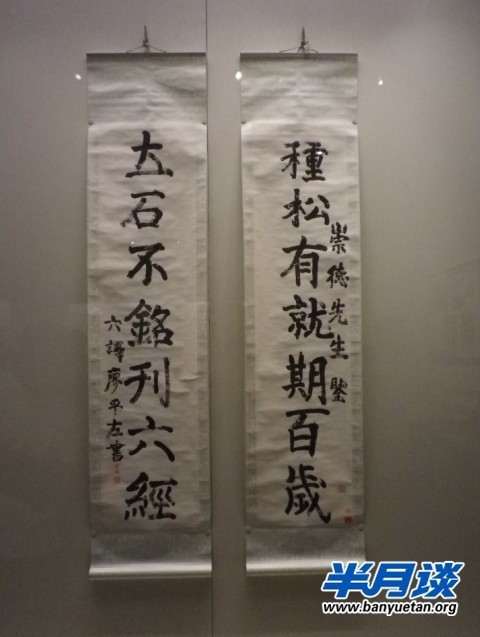 種松有就期百歲
崇德先生鑒
立石不銘刊六經
六譯廖平左書
半月谈
www.banyuetan.org